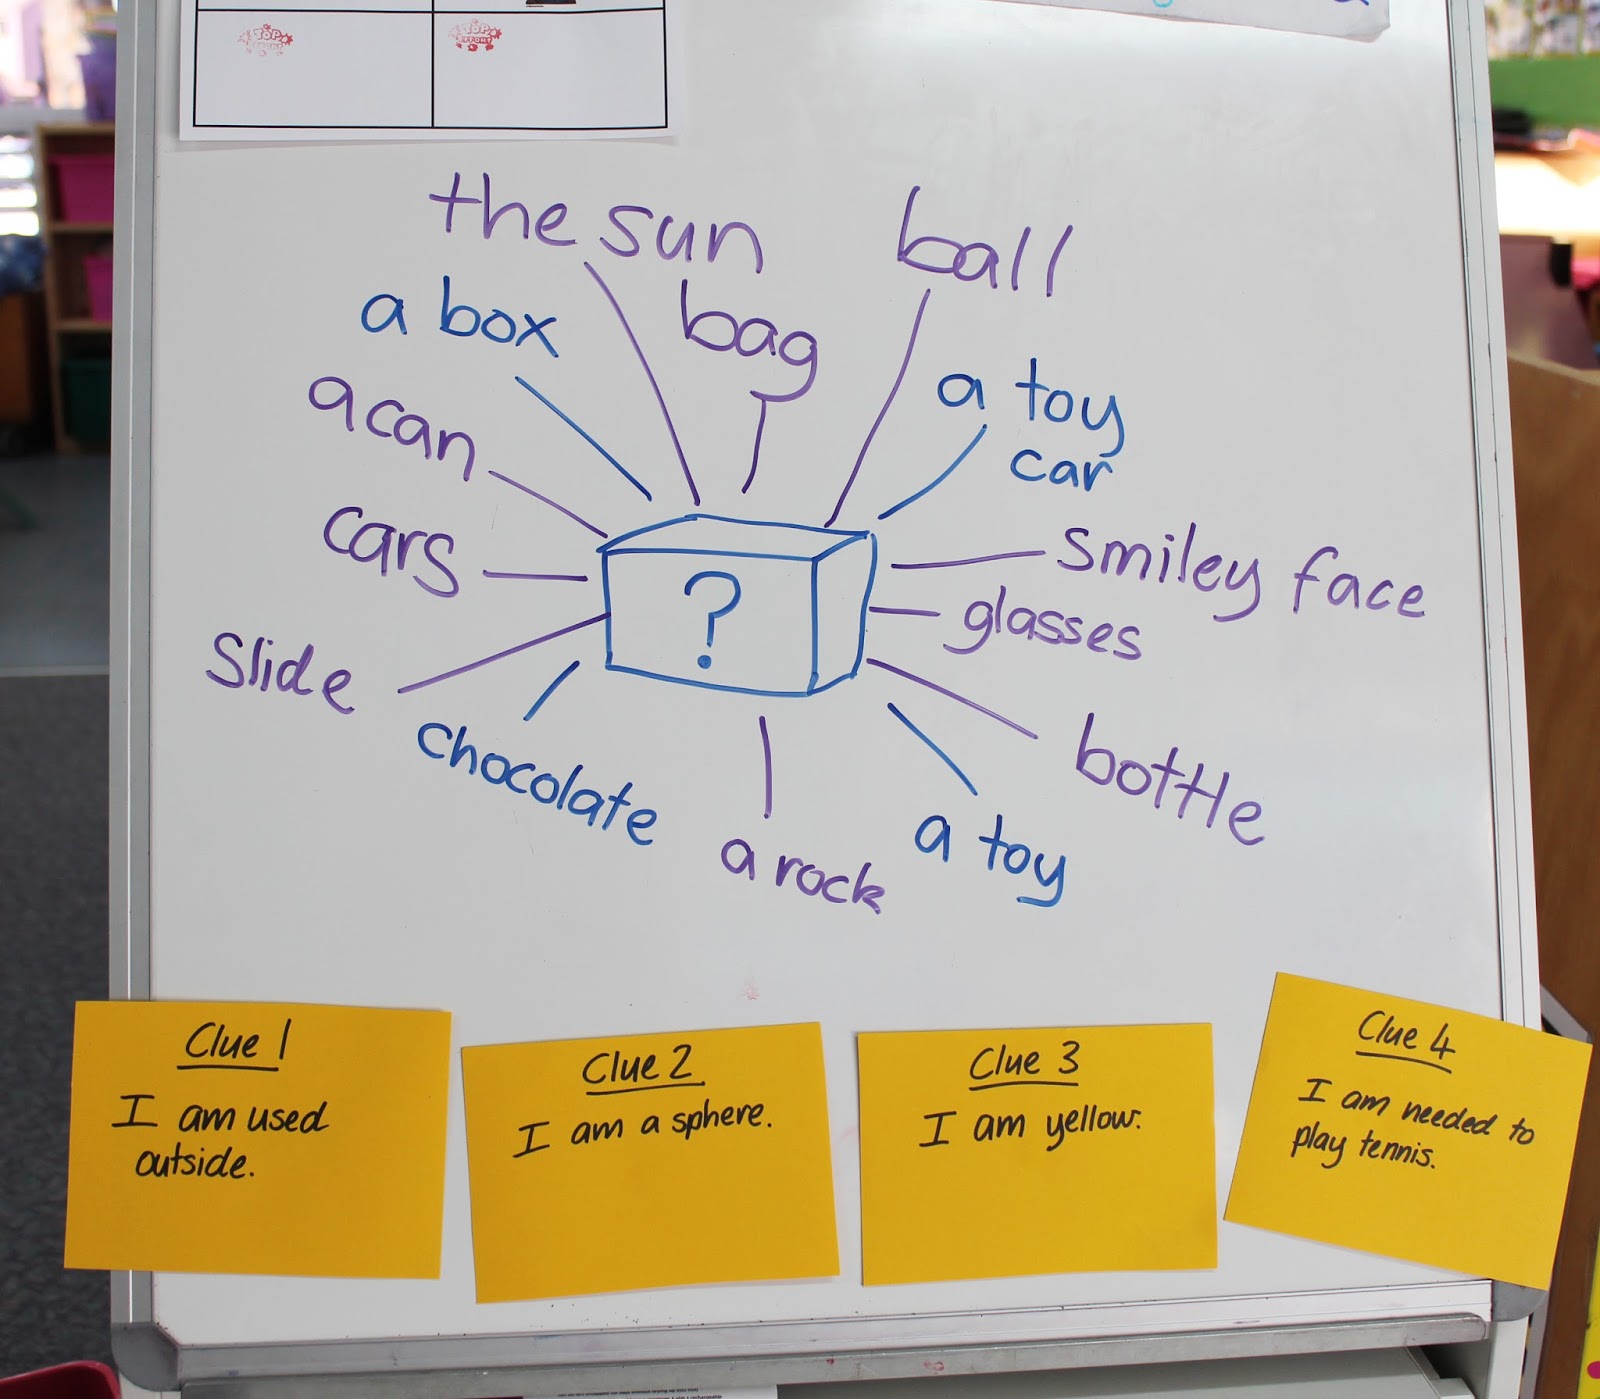 TOP
EFFORT
TOP
EFFORT
the sun
ball
a box
bag
a toy
car
a can
cars
smiley face
glasses
?
slide
chocolate
bottle
a rock
a toy
Clue 1
I am used
outside.
Clue 2
I am a sphere.
Clue 3
I am yellow.
Clue 4
I am needed to
play tennis.